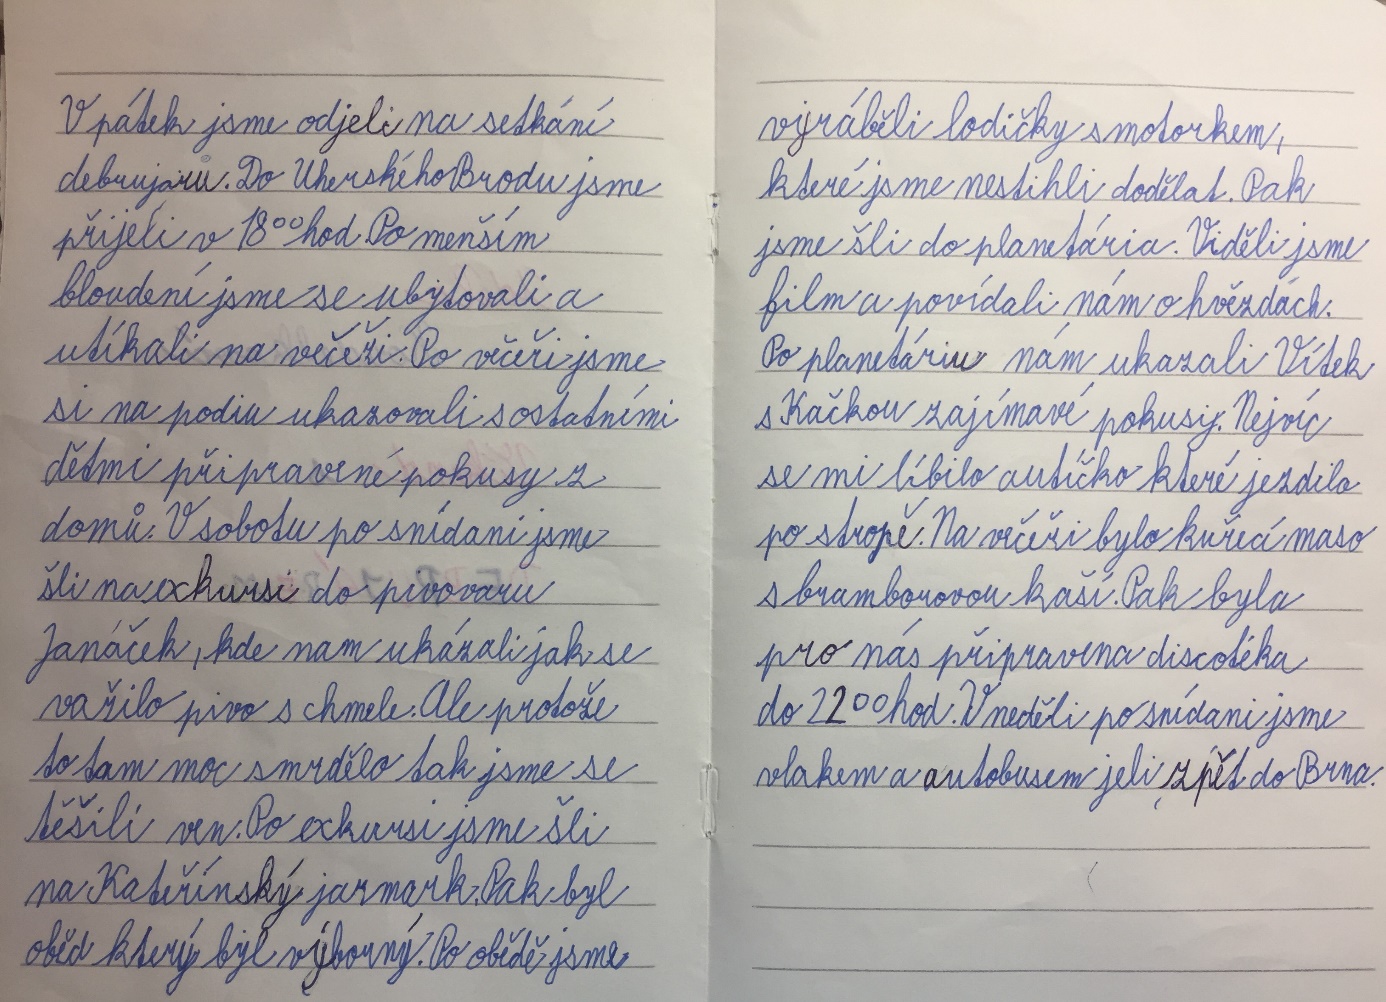 V pátek jsme odjeli na setkání
debrujárů. Do Uherského Brodu jsme
přijeli v 18°° hod. Po menším
bloudení jsme se ubytovali a
utíkali na večeři. Po večeři jsme
si na podiu ukazovali s ostatními
dětmi připravené pokusy z
domů. V sobotu po snídani jsme
šli na exkursi do pivovaru
Janáček, kde nam ukázali jak se
vařilo pivo s chmele. Ale protože
to tam moc smrdělo tak jsme se
těšili ven. Po exkursi jsme šli
na Kateřínský jarmark. Pak byl
oběd který byl výborný. Po obědě jsme
vyráběli lodičky s motorkem,
které jsme nestihli dodělat. Pak
jsme šli do planetária. Viděli jsme
film a povídali nám o hvězdách.
Po planetáriu nám ukazali Vítek
s Kačkou zajímavé pokusy. Nejvíc
se mi líbilo autíčko které jezdilo
po stropě. Na večeři bylo kuřecí maso
s bramborovou kaší. Pak byla
pro nás připravena discotéka
do 22°° hod. V neděli po snídani jsme
vlakem a autobusem jeli zpět do Brna.